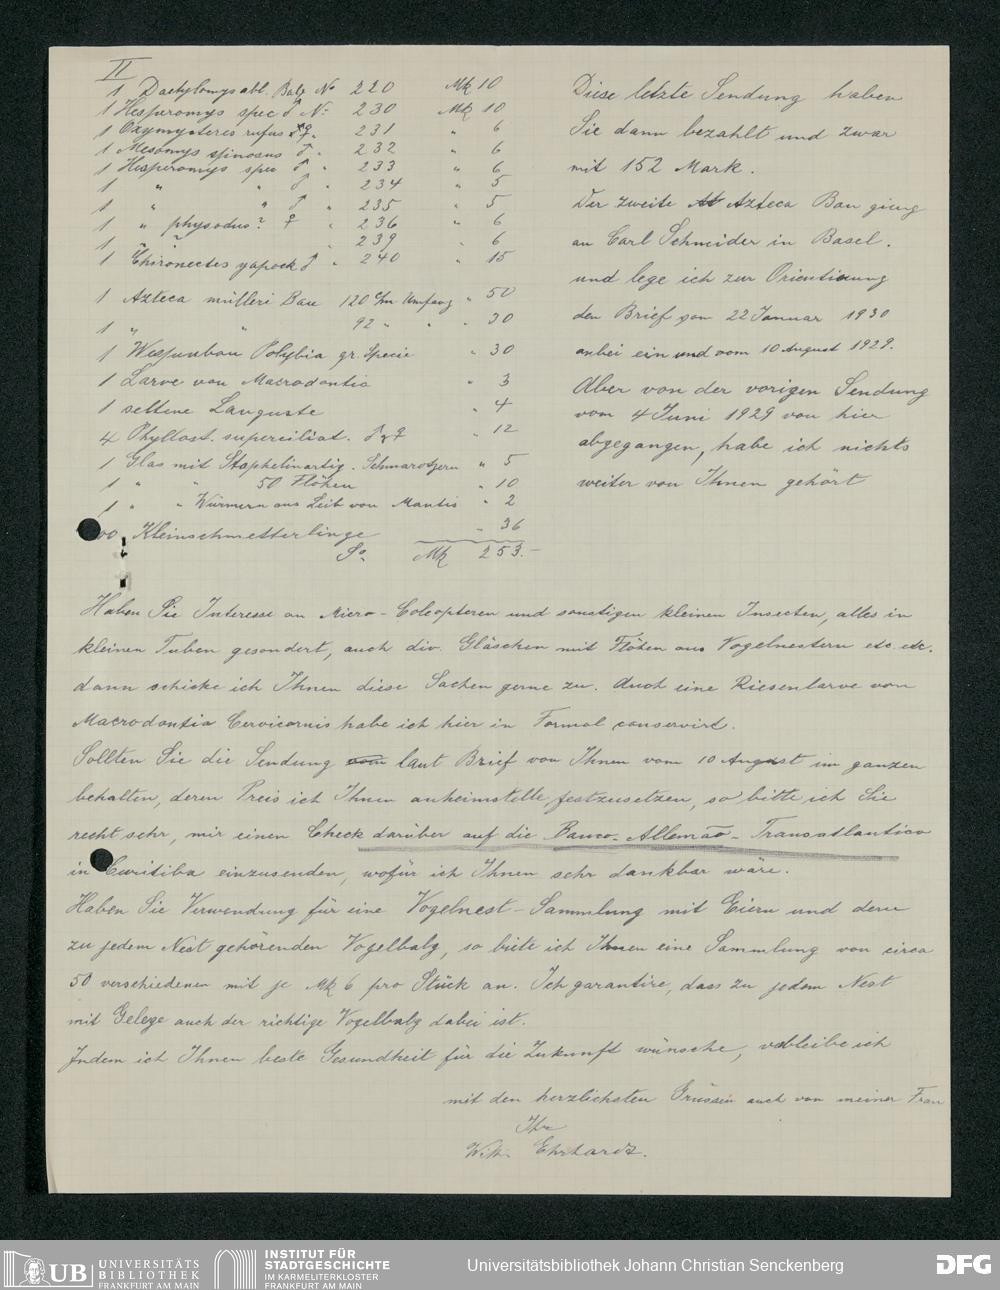 II
1 Dactylomys abl. Balg No 220 Mk 10
1 Hesperomys spec ♂ No 230 Mk 10
1 Oxymycteres rufus ♂♀ " 231 " 6
1 Mesomys spinosus ♂ " 232 " 6
1 Hesperomys spec " 233 " 6
1 " " ♂ " 234 " 5
1 " " ♂ " 235 " 5
1 " physodus? ♀ " 236 " 6
1 " " " 239 " 6
1 Chironectes yapock ♂ " 240 " 15
1 Azteca mülleri Bau 120 Ctm Umfang " 50
1 " " 92 " " " 30
1 Wespenbau Polybia gr. Specie " 30
1 Larve von Macrodontia " 3
1 seltene Languste " 4
4 Phyllost. superciliat. ♂ & ♀ " 12
1 Glas mit Staphelinartig. Schmarotzern " 5
1 " " 50 Flöhen " 10
1 " " Würmern aus Leib von Mantis " 2
00 Kleinschmetterlinge " 36
Sa. Mk 253.-
Diese letzte Sendung haben
Sie dann bezahlt und zwar
mit 152 Mark.
Der zweite Azteca Bau gieng
an Carl Schneider in Basel.
und lege ich zur Orientirung
den Brief von 22 Januar 1930
anbei ein und vom 10 August 1929.
Aber von der vorigen Sendung
vom 4 Juni 1929 von hier
abgegangen, habe ich nichts
weiter von Ihnen gehört
Haben Sie Interesse an Micro-Coleopteren und sonstigen kleinen Insecten, alles in
kleinen Tuben gesondert, auch div. Gläschen mit Flöhen aus Vogelnestern etc. etc.
dann schicke ich Ihnen diese Sachen gerne zu. Auch eine Riesenlarve von
Macrodontia Cervicornis habe ich hier in Formol conservirt.
Sollten Sie die Sendung vom laut Brief von Ihnen vom 10 August im ganzen
behalten, deren Preis ich Ihnen anheimstelle festzusetzen, so bitte ich Sie
recht sehr, mir einen Check darüber auf die Banco-Allemão-Transatlantico
in Curitiba einzusenden, wofür ich Ihnen sehr dankbar wäre.
Haben Sie Verwendung für eine Vogelnest-Sammlung mit Eiern und dem
zu jedem Nest gehörenden Vogelbalg, so biete ich Ihnen eine Sammlung von circa
50 verschiedenen mit je Mk 6 pro Stück an. Ich garantire, dass zu jedem Nest
mit Gelege auch der richtige Vogelbalg dabei ist.
Indem ich Ihnen beste Gesundheit für die Zukunft wünsche, verbleibe ich
mit den herzlichsten Grüssen auch von meiner Frau
Ihr
Wilh. Ehrhardt.
UB UNIVERSITÄTS
BIBLIOTHEK
FRANKFURT AM MAIN
INSTITUT FÜR
STADTGESCHICHTE
IM KARMELITERKLOSTER
FRANKFURT AM MAIN
Universitätsbibliothek Johann Christian Senckenberg
DFG